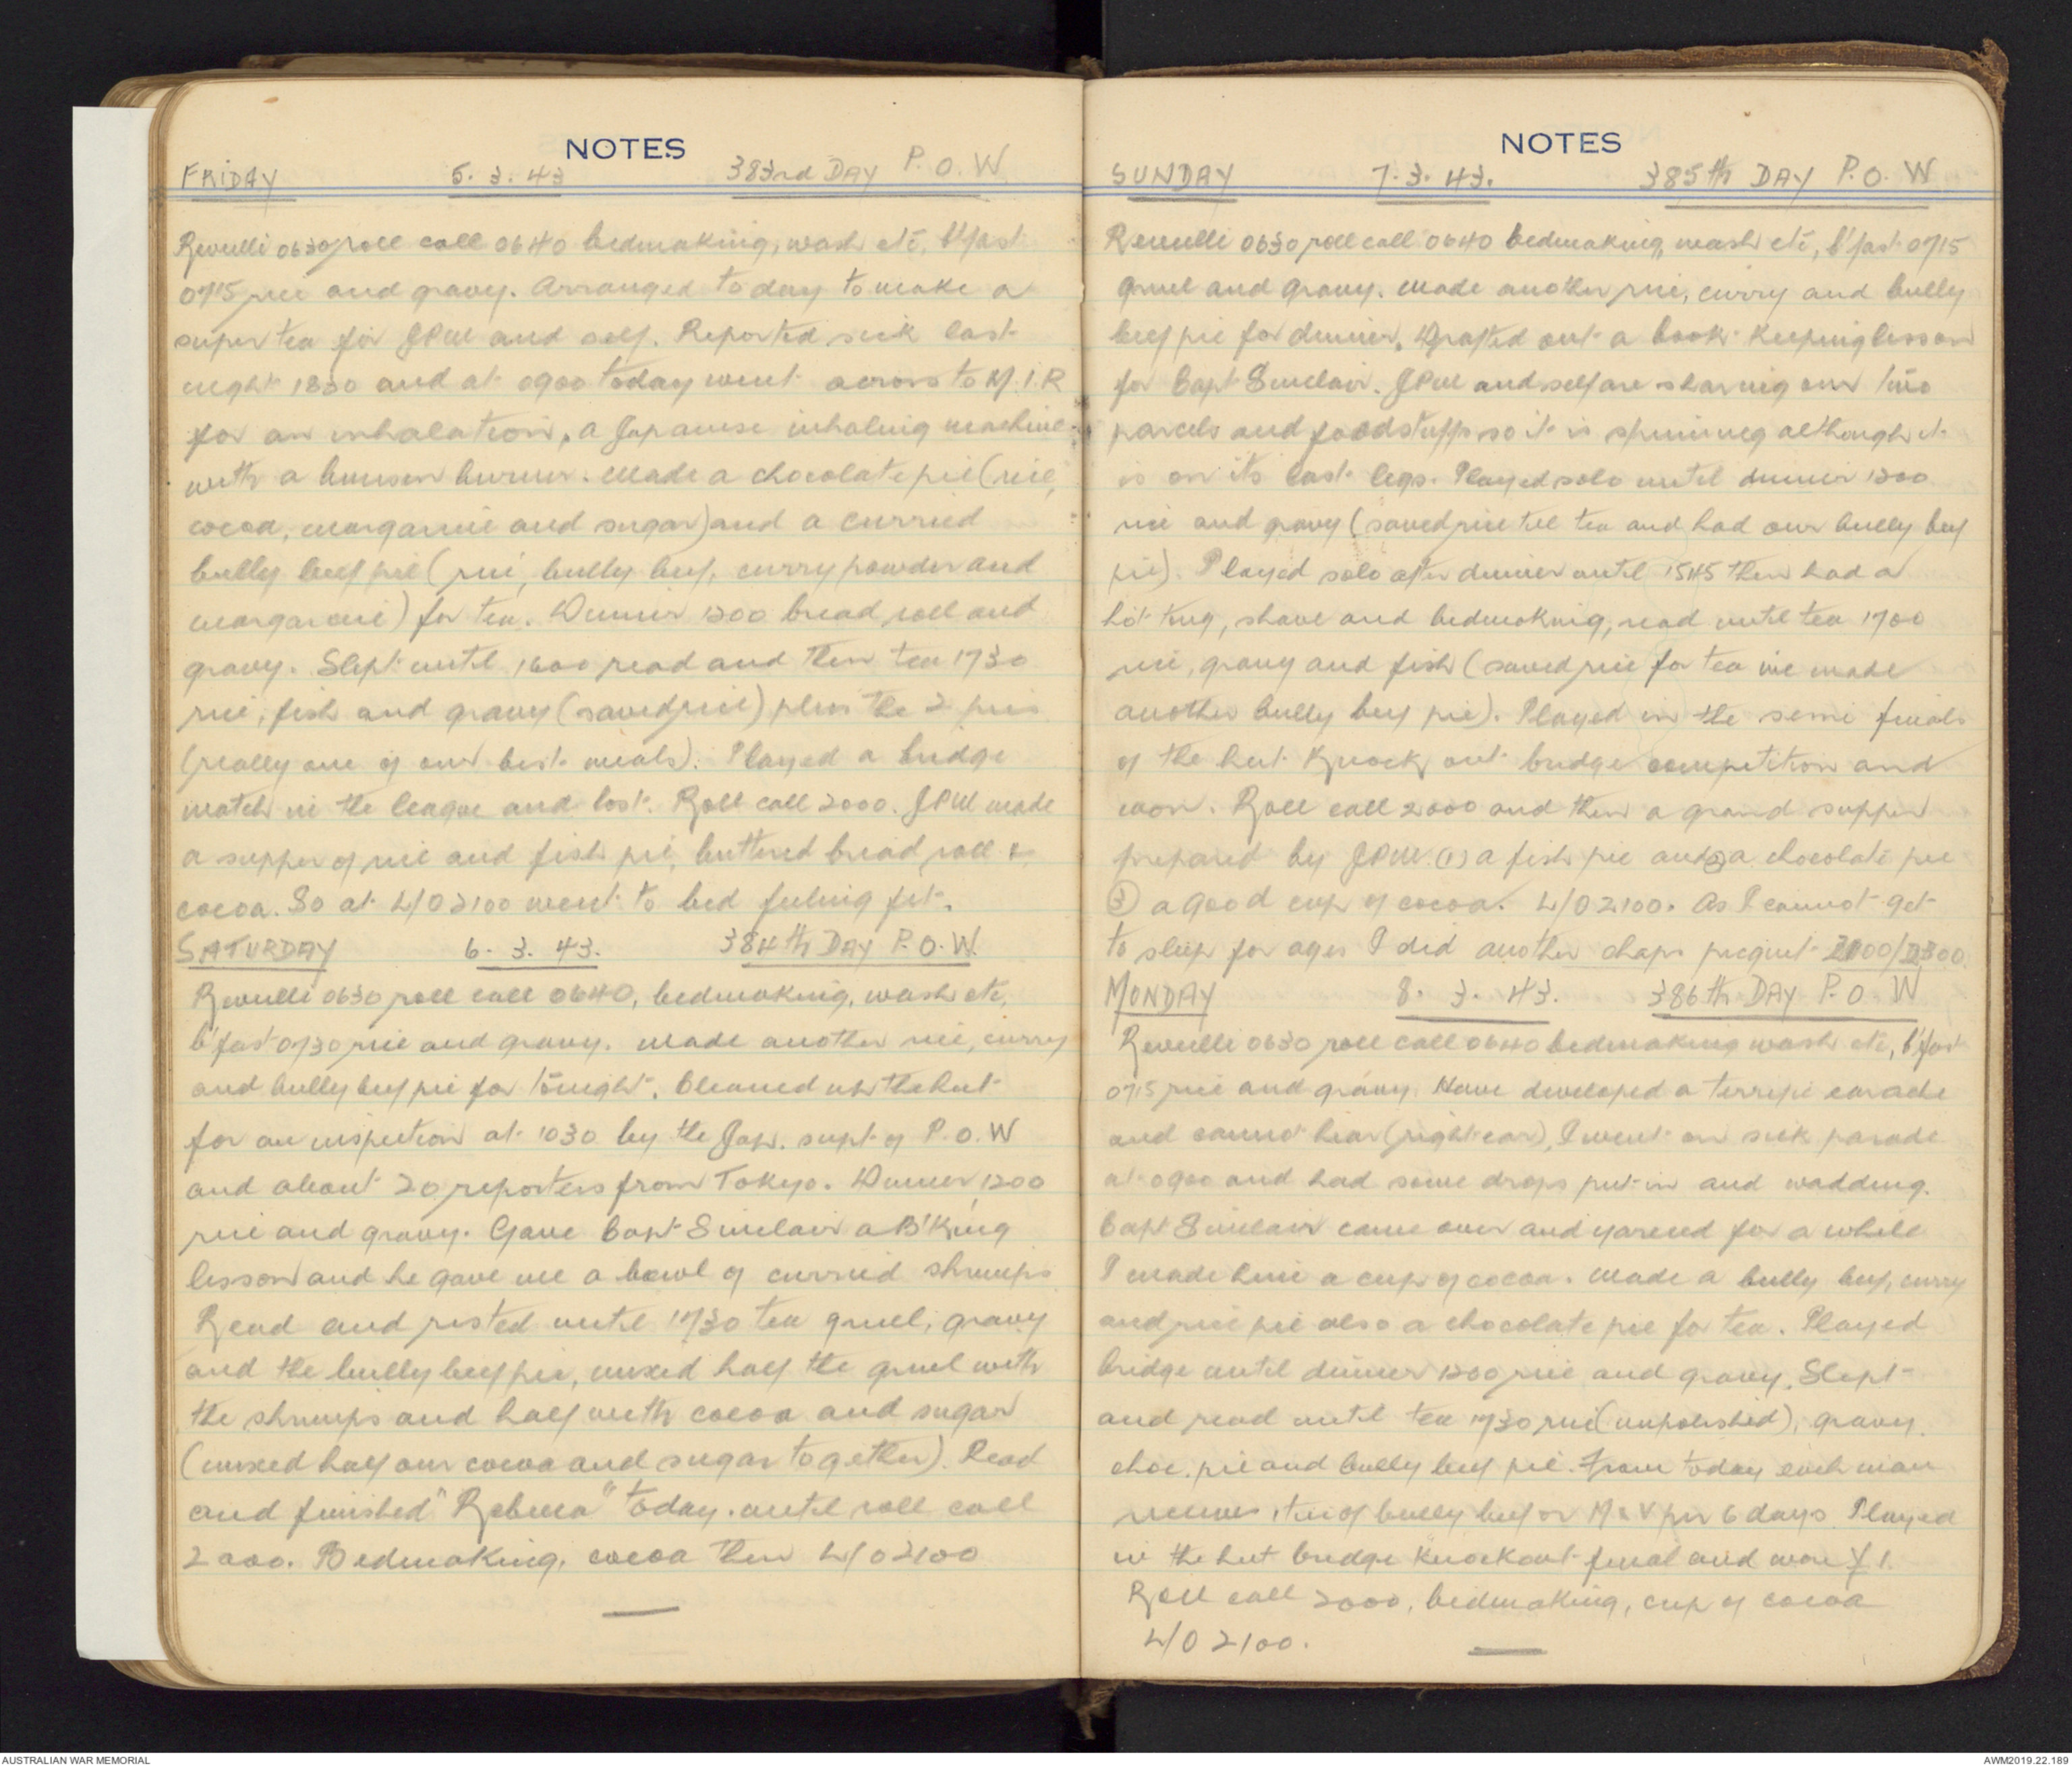 NOTES
FRIDAY 5.3.43 383rd DAY P.O.W
Reveille 0630 roll call 0640 bedmaking, wash etc, b'fast
0715 rice and gravy. Arranged today to make a
super tea for JPW and self. Reported sick last
night 1830 and at 0900 today went across to M.I.R
for an inhalation, a Japanese inhaling machine
with a bunsen burner. Made a chocolate pie (rice,
cocoa, margarine and sugar) and a curried
bully beef pie (rice, bully beef, curry powder and
margarine) for tea. Dinner 1200 bread roll and
gravy. Slept until 1600 read and then tea 1730
rice, fish and gravy (saved rice) plus the 2 pies
(really one of our best meals). Played a bridge
match in the league and lost. Roll call 2000. JPW made
a supper of rice and fish pie, buttered bread roll &
cocoa. So at L/O 2100 went to bed feeling fit.
SATURDAY 6.3.43. 384th DAY P.O.W.
Reveille 0630 roll call 0640, bedmaking, wash etc,
b'fast 0730 rice and gravy. Made another rice, curry
and bully beef pie for tonight. Cleaned up the hut
for an inspection at 1030 by the Jap. supt of P.O.W
and about 20 reporters from Tokyo. Dinner 1200
rice and gravy. Gave Capt Sinclair a B'King
lesson and he gave me a bowl of curried shrimps
Read and rested until 1730 tea gruel, gravy
and the bully beef pie, mixed half the gruel with
the shrimps and half with cocoa and sugar
(mixed half our cocoa and sugar together). Read
and finished "Rebecca" today. until roll call
2000. Bedmaking, cocoa then L/O 2100
NOTES
SUNDAY 7.3.43. 385th DAY P.O.W
Reveille 0630 roll call 0640 bedmaking, wash etc, b'fast 0715
gruel and gravy. Made another rice, curry and bully
beef pie for dinner. Drafted out a book keeping lesson
for Capt Sinclair. JPW and self are sharing our two
parcels and foodstuffs so it is spinning although it
is on its last legs. Played solo until dinner 1200
rice and gravy (saved rice till tea and had our bully beef
pie). Played solo after dinner until 1545 then had a
hot tug, shave and bedmaking, read until tea 1700
rice, gravy and fish (saved rice for tea we made
another bully beef pie). Played in the semi finals
of the hut Knock out bridge competition and
won. Roll call 2000 and then a grand supper
prepared by JPW (1) a fish pie and (2) a chocolate pie
(3) a good cup of cocoa. L/O 2100. As I cannot get
to sleep for ages I did another chaps picquet 2100/2300.
MONDAY 8.3.43. 386th DAY P.O.W
Reveille 0630 roll call 0640 bedmaking wash etc, b'fast
0715 rice and gravy. Have developed a terrific earache
and cannot hear (right ear), I went on sick parade
at 0900 and had some drops put in and wadding.
Capt Sinclair came over and yarned for a while
I made him a cup of cocoa. Made a bully beef, curry
and rice pie also a chocolate pie for tea. Played
bridge until dinner 1200 rice and gravy. Slept
and read until tea 1730 rice (unpolished), gravy,
choc. pie and bully beef pie. From today each man
receives 1 tin of bully beef or M & V per 6 days. Played
in the hut bridge knockout final and won £1.
Roll call 2000, bedmaking, cup of cocoa
L/O 2100.
AUSTRALIAN WAR MEMORIAL
AWM2019.22.189